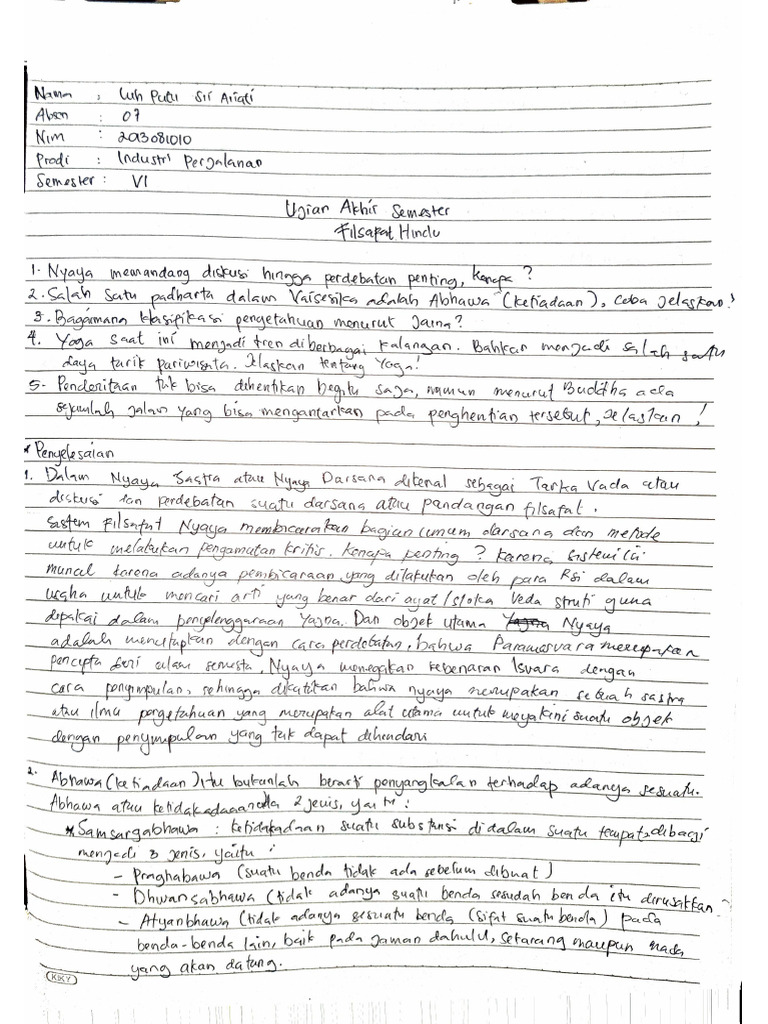 Nama : Luh Putu Sri Ariati
Absen : 07
Nim : 2013081010
Prodi : Industri Perjalanan
Semester : VI
Ujian Akhir Semester
Filsafat Hindu
1. Nyaya memandang diskusi hingga perdebatan penting, kenapa ?
2. Salah satu padharta dalam Vaisesika adalah Abhawa (ketiadaan), coba jelaskan!
3. Bagamana klasifikasi pengetahuan menurut Jaina?
4. Yoga saat ini menjadi tren diberbagai kalangan. Bahkan menjadi salah satu
daya tarik pariwisata. Jelaskan tentang Yoga!
5. Penderitaan tak bisa dihentikan begitu saja, namun menurut Buddha ada
sejumlah jalan yang bisa mengantarkan pada penghentian tersebut, jelaskan !
* Penyelesaian
1. Dalam Nyaya Sastra atau Nyaya Darsana dikenal sebagai Tarka Vada atau
diskusi dan perdebatan suatu darsana atau pandangan filsafat.
Sistem Filsafat Nyaya membicarakan bagian umum darsana dan metode
untuk melakukan pengamatan kritis. Kenapa penting ? Karena sistem ini
muncul karena adanya pembicaraan yang dilakukan oleh para Rsi dalam
usaha untuk mencari arti yang benar dari ayat / sloka Veda struti guna
dipakai dalam penyelenggaraan Yajna. Dan objek utama Nyaya
adalah menetapkan dengan cara perdebatan, bahwa Parameswara merupakan
pencipta dari alam semesta. Nyaya menegakan kebenaran Iswara dengan
cara penyimpulan, sehingga dikatakan bahwa nyaya merupakan sebuah sastra
atau ilmu pengetahuan yang merupakan alat utama untuk meyakini suatu objek
dengan penyimpulan yang tak dapat dihindari
2. Abhawa (ketiadaan) itu bukunlah berarti penyangkalan terhadap adanya sesuatu.
Abhawa atau ketidakadaan ada 2 jenis, yaitu :
* Samsargabhawa : ketidakadaan suatu substansi didalam suatu tempat, dibagi
menjadi 3 jenis, yaitu :
- Praghabawa (suatu benda tidak ada sebelum dibuat)
- Dhwansabhawa (tidak adanya suatu benda sesudah benda itu dirusakkan
- Atyanbhawa (tidak adanya sesuatu benda (sifat suatu benda) pada
benda-benda lain, baik pada jaman dahulu, sekarang maupun pada
yang akan datang.
KIKY